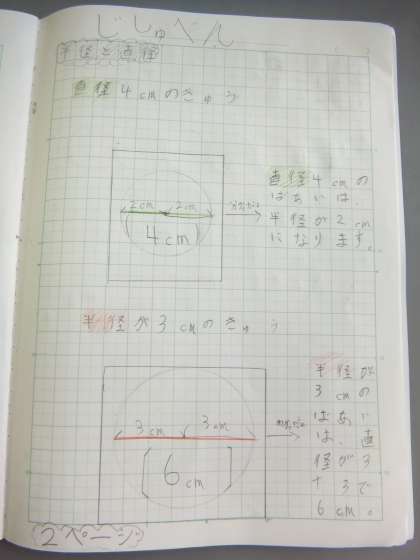 じしゅべん
半径と直径
直径4cmのきゅう
2cm 2cm
(4cm)
直径4cmの
ばあいは、
半径が2cm
になります。
半径が3cmのきゅう
3cm 3cm
[6cm]
半径が
3cmの
ばあい
は、直
径が3
+3で
6cm。
2ページ